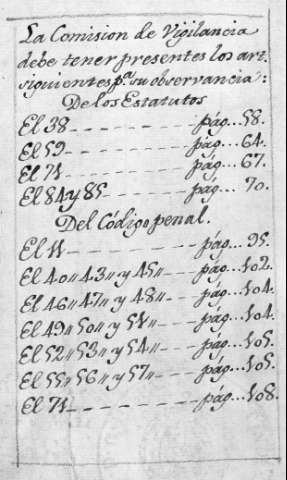 La Comision de Vigilancia
debe tener presentes los art.
siguientes p.ª su observancia:
De los Estatutos
El 38 - - - - - - - - pág... 58.
El 59 - - - - - - - - pág... 64.
El 71 - - - - - - - - pág... 67.
El 84 y 85 - - - - - - pág... 70.
Del Código penal.
El 11 - - - - - - - - pág... 95.
El 40 〃 43 〃 y 45 〃 - - - pág... 102.
El 46 〃 47 〃 y 48 〃 - - - pág... 104.
El 49 〃 50 〃 y 51 〃 - - - pág... 104.
El 52 〃 53 〃 y 54 〃 - - - pág... 105.
El 55 〃 56 〃 y 57 〃 - - - pág... 105.
El 71 - - - - - - - - pág... 108.